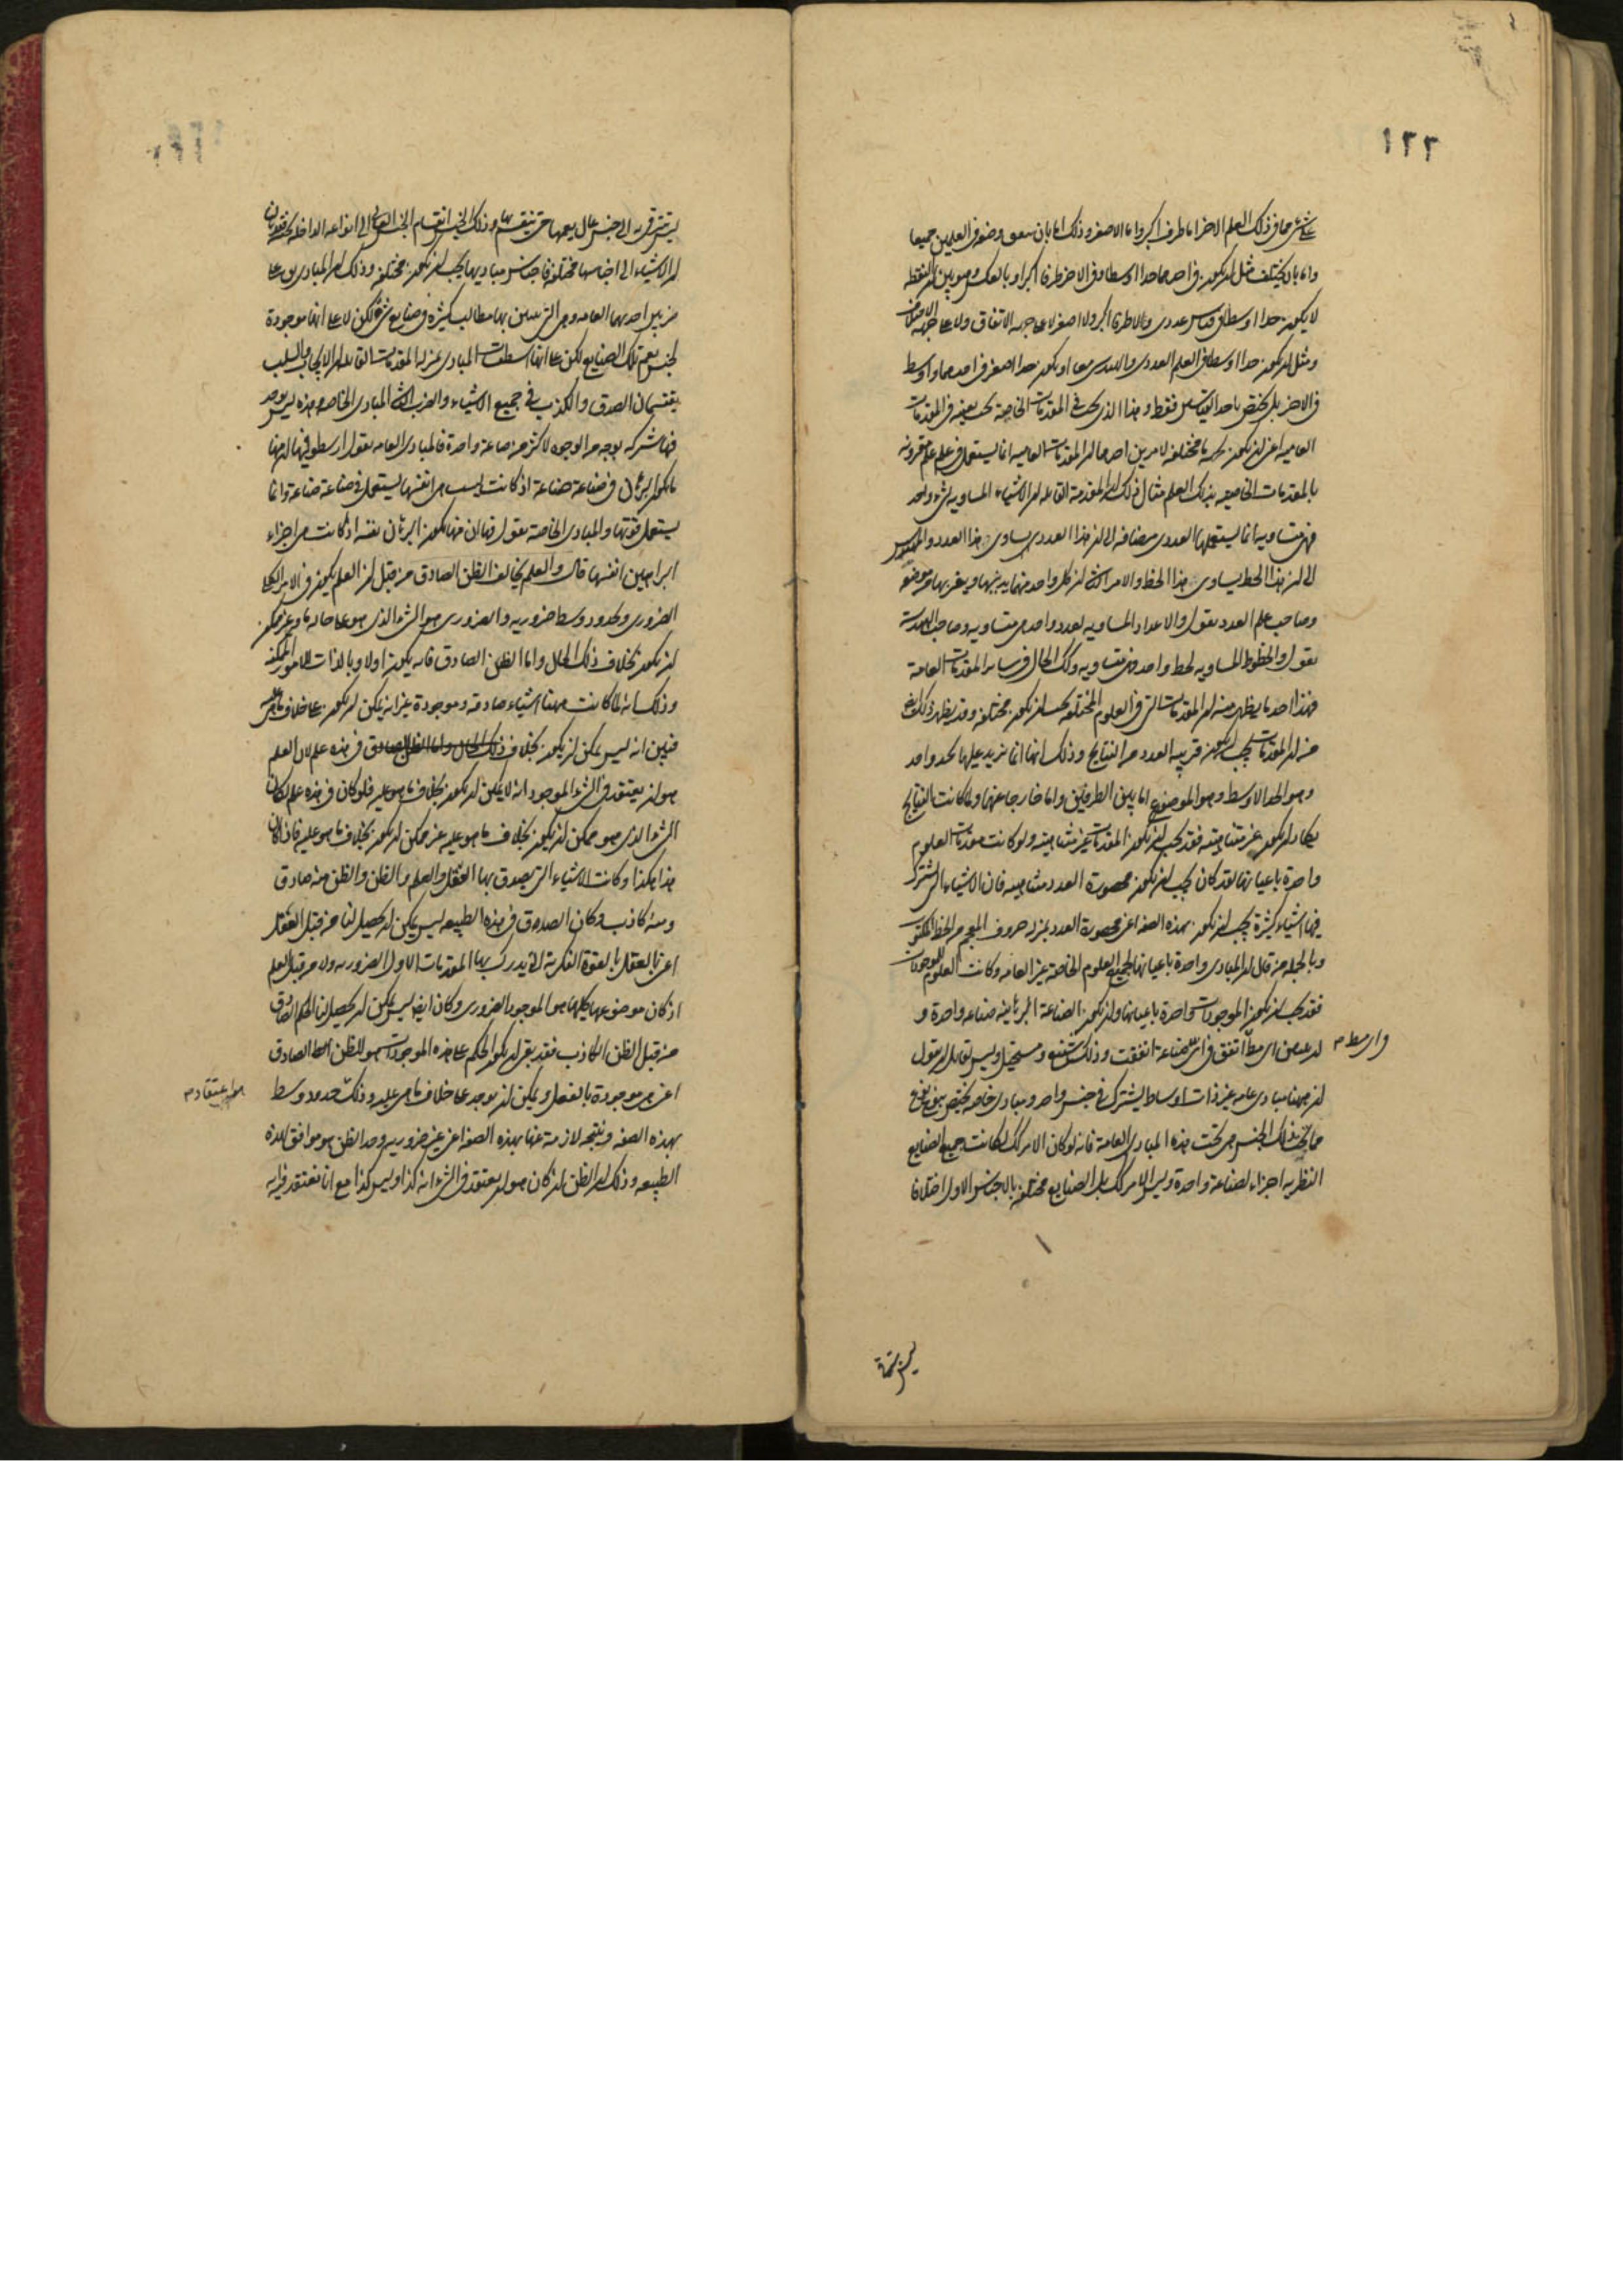 ١٢٢
على شىء ما فى ذلك العلم الاخر اما طرف اكبر واما الاصغر وذلك اما بان يتفق وضعه فى العلمين جميعا
واما بان يختلف مثل ان يكون فى احدهما حدا اوسط وفى الاخر طرفا اكبر او بالعكس وهو بين ان النقط
لا يكون حدا اوسط فى قياس عددى ولا طرفا اكبر ولا اصغر لا على جهة الاتفاق ولا على جهة الاختلاف
ومثل ان يكون حدا اوسط فى العلم العددى والهندسى معا او يكون حدا اصغر فى احدهما واوسط
فى الاخر بل يختص باحد القياسين فقط وهذا الذى يجب فى المقدمات الخاصة يجب بعينه فى المقدمات
العامية اعنى ان يكون مختلفة لامرين احدهما ان المقدمات العامية انما يستعمل فى علم علم مقرونة
بالمقدمات الخاصية بذلك العلم مثال ذلك ان المقدمة القائلة ان الاشياء المساوية لشىء واحد
فهى متساوية انما يستعملها العددى مضافة الى ان هذا العدد يساوى هذا العدد والمهندس
الى ان هذا الخط يساوى هذا الخط والامر الثانى ان كل واحد منهما يدنيها ويقربها من موضوعه
وصاحب علم العدد يقول والاعداد المساوية لعدد واحد هى متساوية وصاحب الهندسة
يقول والخطوط المساوية لخط واحد فهى متساوية وكذلك الحال فى سائر المقدمات العامة
فهذا احد ما يظهر منه ان المقدمات التى فى العلوم المختلفة يجب ان يكون مختلفة وقد يظهر ذلك ايضا
من ان المقدمات يجب ان يكون قريبة العدد من النتايج وذلك انها انما تزيد عليها بحد واحد
وهو الحد الاوسط وهو الموضوع اما بين الطرفين واما خارجا عنها ولما كانت النتايج
يكاد ان يكون غير متناهية فقد يجب ان يكون المقدمات غير متناهية ولو كانت مقدمات العلوم
واحدة باعيانها لقد كان يجب ان يكون محصورة العدد متناهية فان الاشياء التى تشترك
فيها اشياء كثيرة يجب ان يكون بهذه الصفة اعنى محصورة العدد بمنزلة حروف المعجم من الخط المكتوب
وبالجملة من قال ان المبادى واحدة باعيانها لجميع العلوم الخاصة غير العامة وكانت العلوم للموجودات
فقد يجب ان يكون الموجودات واحدة باعيانها وان يكون الصناعة البرهانية صناعة واحدة و
ان يبرهن اى مط اتفق فى اى صناعة اتفقت وذلك شنيع ومستحيل وليس لقائل ان يقول
ان ههنا مبادى عامة غير ذات اوساط يشترك فى جنس واحد ومبادى خاصة يختص بنوع نوع
مما تحت ذلك الجنس هى تحت هذه المبادى العامة فانه لو كان الامر كذلك لكانت جميع الصنايع
النظرية اجزاء لصناعة واحدة وليس الامر كذلك بل الصنايع مختلفة بالاجناس الاول اختلافا
ليس يترقى به الى جنس عال يعمها حتى تنقسم بها وذلك الجنس انقسام الجنس العالى الى انواعه الداخلة تحته فقد بان
ان الاشياء التى اجناسها مختلفة فاجناس مباديها يجب ان يكون مختلفة وذلك ان المبادى يوجد على
ضربين احدهما العامة وهى التى تبين بها مطالب كثيرة فى صنايع شتى لكن لا على انها موجودة
لجنس يعم تلك الصنايع لكن على انها اسطقسات المبادى بمنزلة المقدمات القائلة ان الايجاب والسلب
يقتسمان الصدق والكذب فى جميع الاشياء والضرب الثانى المبادى الخاصة وهذه ليس يوجد
فيها شركة بوجه من الوجوه لاكثر من صناعة واحدة فالمبادى العامة يقول ارسطو فيها ان منها
ما يكون البرهان فى صناعة صناعة اذ كانت ليست هى انفسها يستعمل فى صناعة صناعة وانما
يستعمل قوتها والمبادى الخاصة يقول فيها ان منها يكون البرهان نفسه اذ كانت هى اجزاء
البراهين انفسها قال والعلم يخالف الظن الصادق من قبل ان العلم يكون فى الامر الكلى
الضرورى وبحدود وسط ضرورية والضرورى هو الشىء الذى هو على حالة ما وغير ممكن
ان يكون بخلاف ذلك الحال واما الظن الصادق فانه يكون اولا وبالذات للامور الممكنة
وذلك انه لما كانت ههنا اشياء صادقة وموجودة غير انه يمكن ان يكون على خلاف ما هى عليه
فبين انه ليس يمكن ان يكون بخلاف ذلك الحال واما الظن الصادق فى هذه علم لان العلم
هو ان يعتقد فى الشىء الموجود انه لا يمكن ان يكون بخلاف ما هو عليه فلو كان فى هذه علم لكان
الشىء الذى هو ممكن ان يكون بخلاف ما هو عليه غير ممكن ان يكون بخلاف ما هو عليه فاذا كان
هذا هكذا وكانت الاشياء التى يصدق بها العقل والعلم والظن والظن منه صادق
ومنه كاذب وكان الصدق فى هذه الطبيعة ليس يمكن ان يحصل لنا من قبل العقل
اعنى بالعقل بالقوة الفكرية التى يدرك بها المقدمات الاول الضرورية ولا من قبل العلم
اذ كان موضوعهما كليهما هو الموجود الضرورى وكان ايضا ليس يمكن ان يحصل لنا الحكم الصادق
من قبل الظن الكاذب فقد بقى ان يكون الحكم على هذه الموجودات هو للظن الصادق
اعنى هى موجودة بالفعل ويمكن ان يوجد على خلاف ما هى عليه وذلك بحدود وسط
بهذه الصفة ونتيجة لازمة عنها بهذه الصفة اعنى غير ضرورية وحد الظن هو موافق لهذه
الطبيعة وذلك ان الظن ان كان هو ان يعتقد فى الشىء انه كذا وليس كذا مع انا نعتقد فيه انه